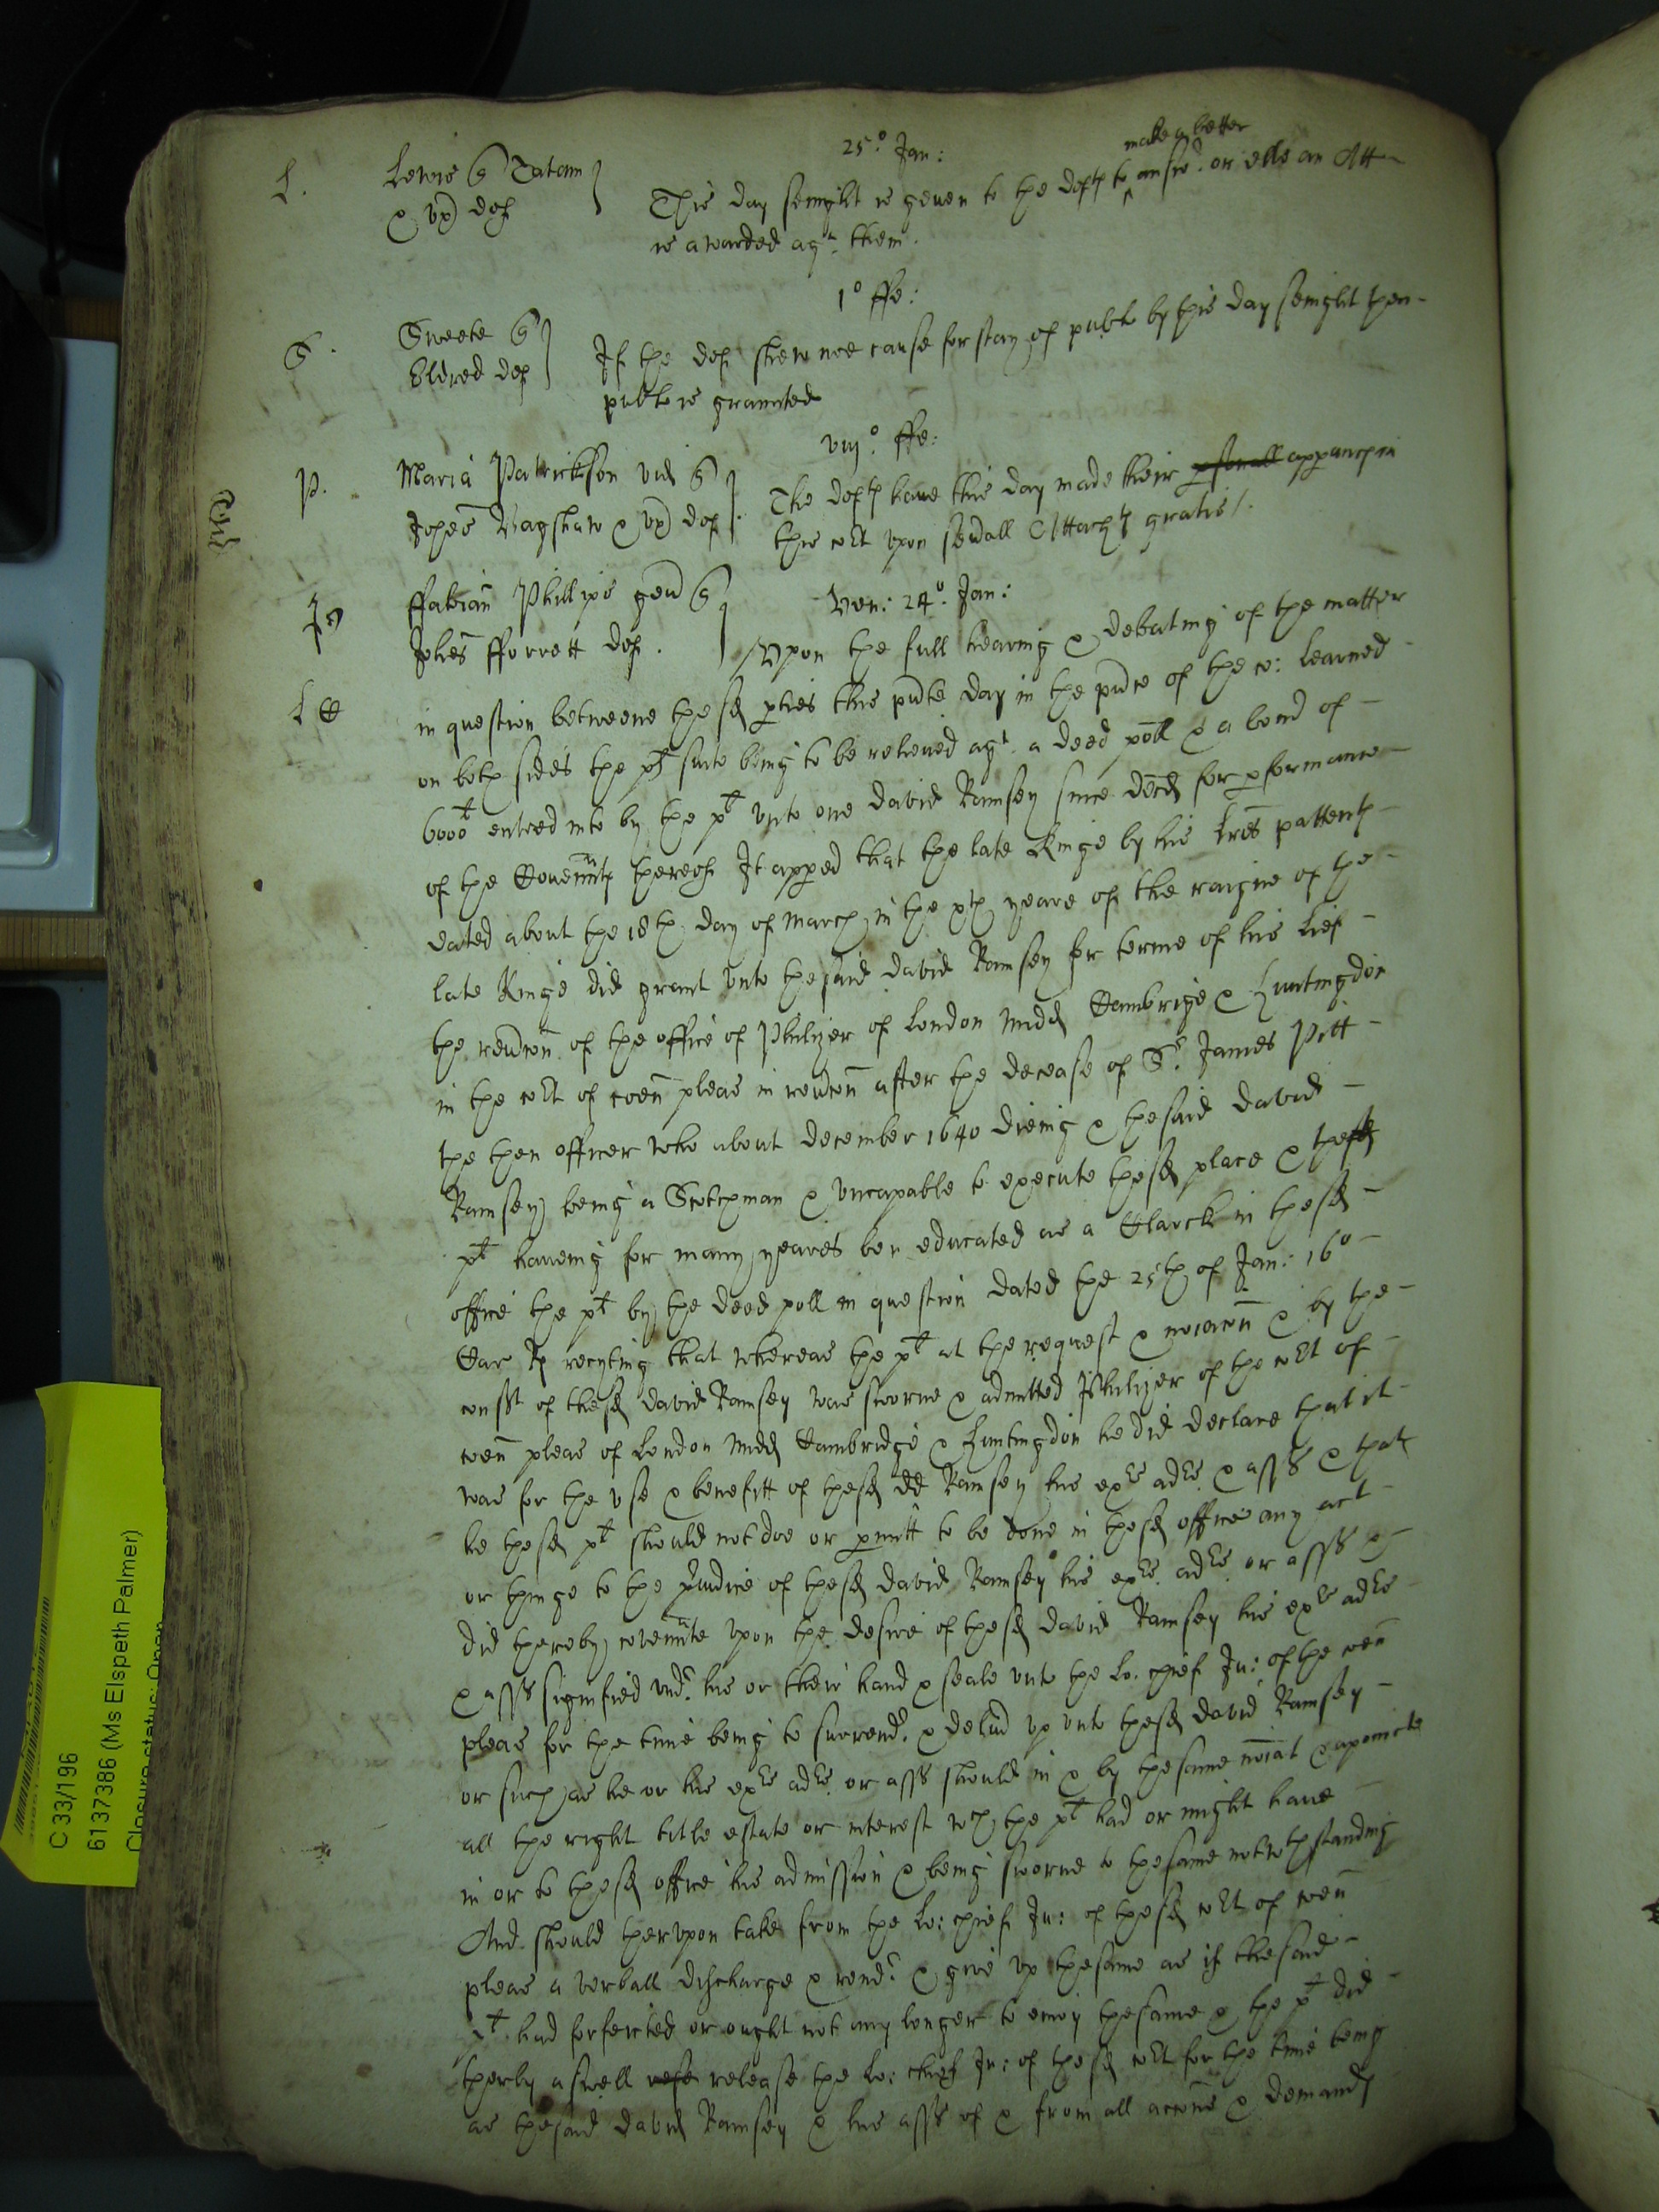 25.º Jan:
L. Lewis q Tatam
& vx def
This day senight is geuen to the defts to make a better answ. or else an Att
is awarded agt. them.
1º ffe:
S. Sweete q
Eldred def
If the def shew noe cause for stay of publc by this day senight then
publc is graunted
viijº ffe:
P. Maria Patrickson vid q
Johes Bagshaw & vx def.
The defts haue this day made their personall apparance in
this cort vpon seuall Attachts gratis /.
ffabian Phillips gen q
Johes fforrett def.
Ven: 24º. Jan:
Vpon the full hearing & debating of the matter
in question betweene these pties this pnte day in the pnce of the co: learned
on both sides the plt suite being to be releiued agt. a deed poll & a bond of
6000l entred into by the plt vnto one David Ramsey since decd for pformance
of the Couennts thereof It appred that the late Kinge by his lres pattents
dated about the 18th day of March in the xth yeare of the raigne of the
late Kinge did grant vnto the said David Ramsey for terme of his lief
the reucon of the office of Philizer of London Midd Cambrige & Huntingdon
in the cort of coen pleas in reucon after the decease of Sr. James Pitt
the then officer who about December 1640 dieing & the said David
Ramsey being a Scotchman & vncapable to execute the sd place & the sd
plt haueing for many yeares ben educated as a Clarck in the sd
office the plt by the deed poll in question dated the 25th of Jan: 16º
Car Rs recyting that whereas the plt at the request & noiacon & by the
consst of the sd David Ramsey was sworne & admitted Philizer of the cort of
coen pleas of London Midd Cambridge & Huntingdon he did declare that it
was for the vse & benefitt of the sd Dd Ramsey his exrs adrs & asss & that
he the sd plt should not doe or pmitt to be done in the sd office any act
or thinge to the piudice of the sd David Ramsey his exrs. adrs. or asss &
did thereby couennte vpon the desire of the sd David Ramsey his exrs adrs
& asss signified vnd. his or their hand & seale vnto the Lo. cheif Ju: of the coen
pleas for the time being to surrend. & deliu vp vnto the sd David Ramsey
or such as he or his exrs adrs. or asss should in & by the same noiat & apointe
all the right title estate or interest wch the plt had or might haue
in or to the sd office his admission & being sworne to the same notwthstanding
And should thervpon take from the Lo: cheif Ju: of the sd cort of coen
pleas a verball discharge & rend. & give vp the same as if the said
plt. had forfeited or ought not any longer to enioy the same & the plt did
therby aswell rese release the Lo: cheif Ju: of the sd cort for the time being
as the said David Ramsey & his asss of & from all accons & demands
C 33/196
6137386 (Ms Elspeth Palmer)
Closure status: Open